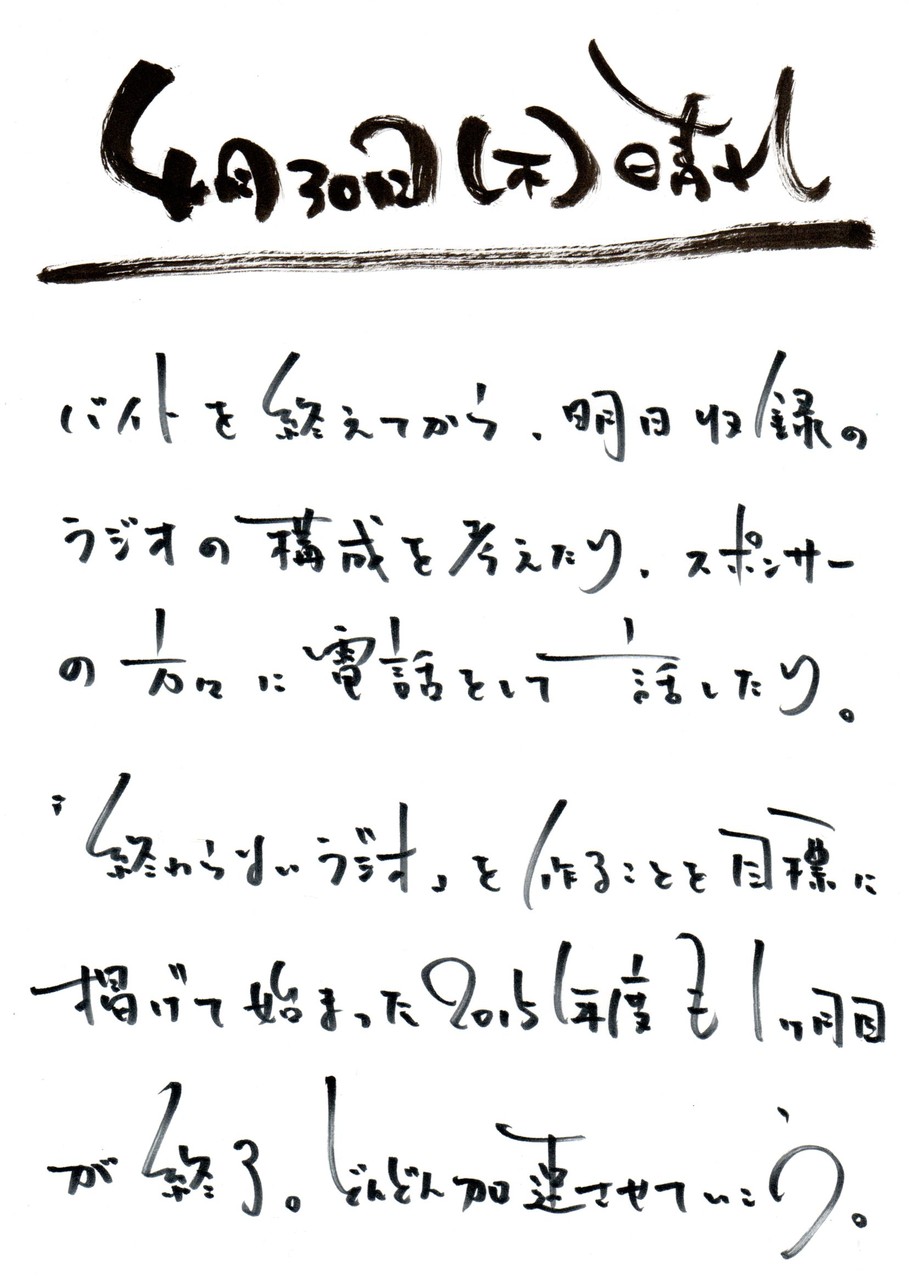 4月30日(木)晴れ
バイトを終えてから、明日収録の
ラジオの構成を考えたり、スポンサー
の方々に電話をして話したり。
『終わらないラジオ』を作ることを目標に
掲げて始まった2015年度も1ヶ月目
が終了。どんどん加速させていこう。